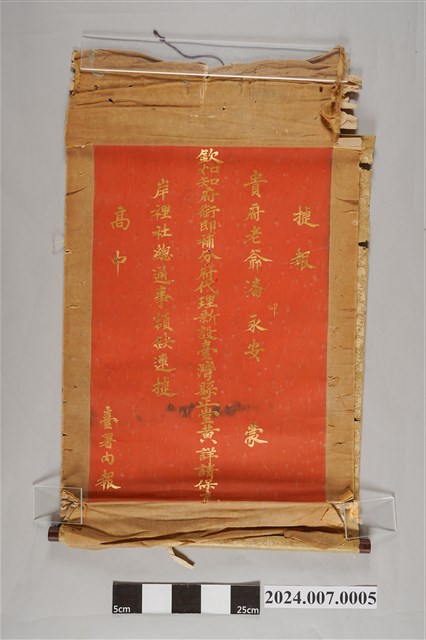 捷報
貴府老爺潘印永安 蒙
欽加知府銜即補分府代理新設臺灣縣正堂黃 詳請保
岸裡社總通事額缺連捷
高中
臺署內報
5cm
25cm
2024.007.0005